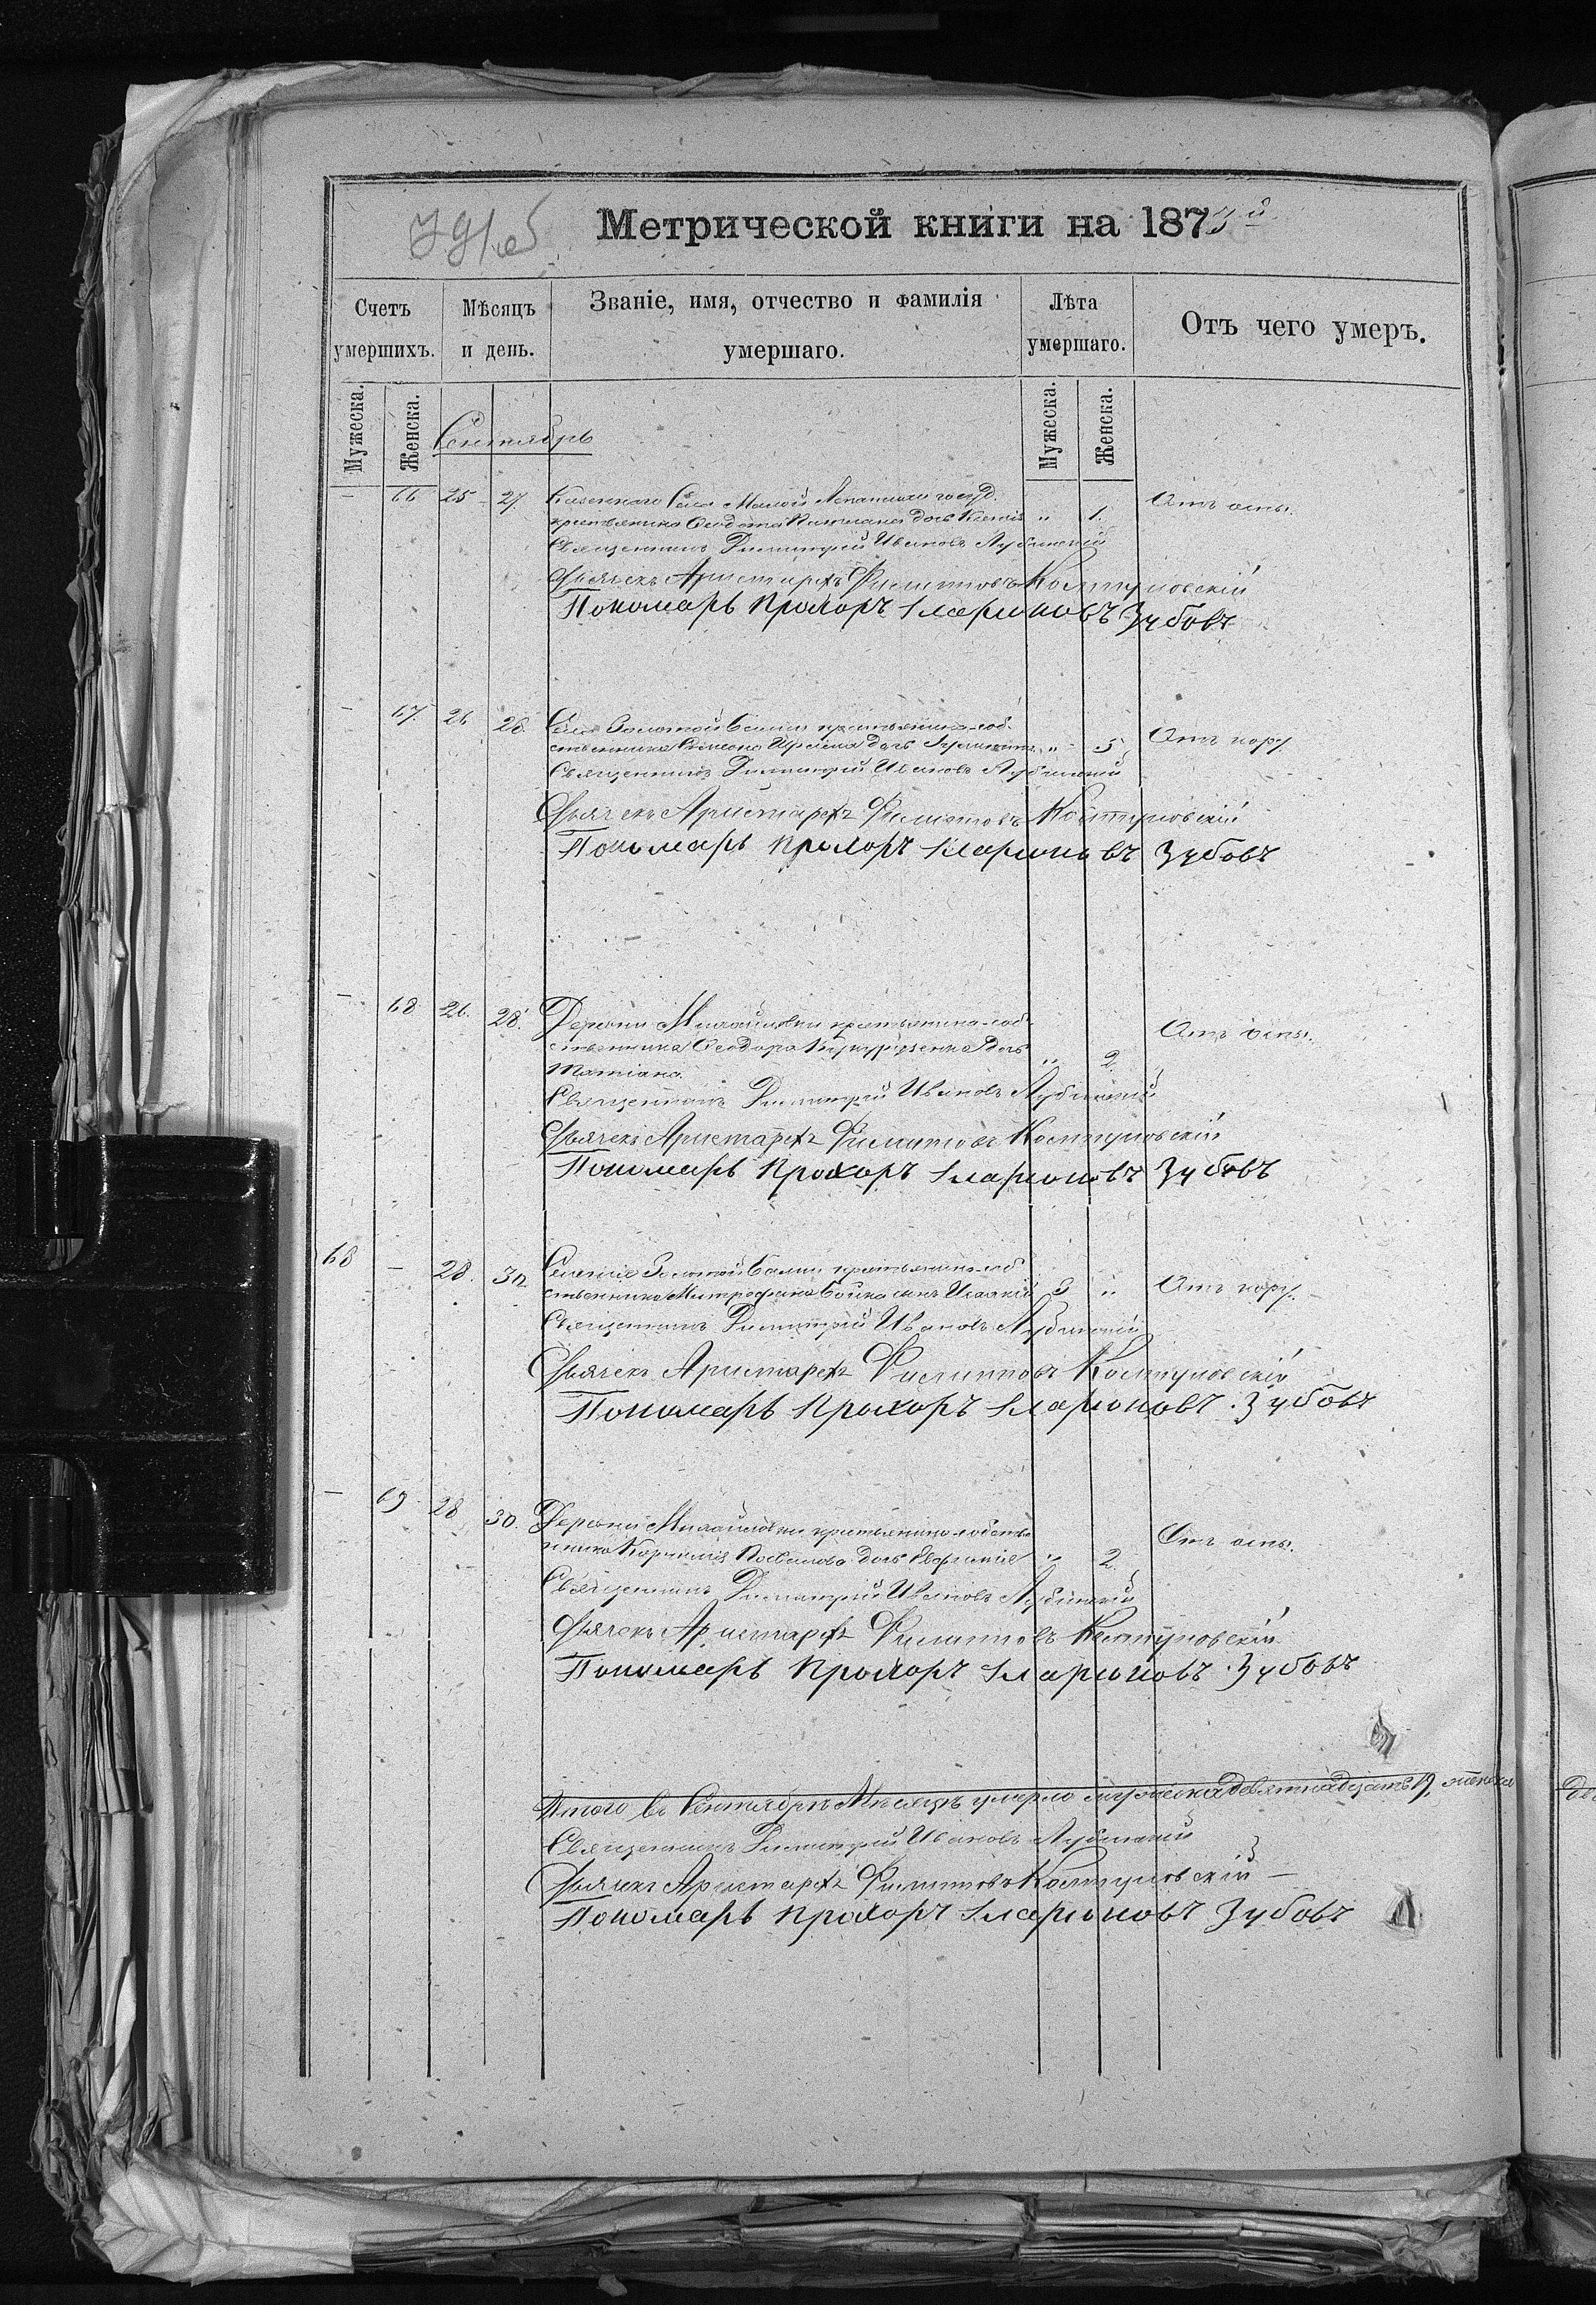 Метрической книги на 187
Счетъ умершихъ.
Мѣсяцъ и день.
Званіе, имя, отчество и фамилія умершаго.
Лѣта умершаго.
Отъ чего умеръ.
Мужеска.
Женска.
Мужеска.
Женска.
Сентябрь
— 66 25 27 Казеннаго Села Малой Лепатихи госуд. „ 1. Отъ оспы.
крестьянина Ѳеодота дочь Ксенія
Священникъ Димитрій Ивановъ Лубинскій
Дьячекъ Аристархъ Филиповъ Колтуновскій
Пономарь Прохоръ Иларионовъ Зубовъ
— 67. 26 28. Села Золотой Балки крестьянина-соб-
ственника дочь „ 5 Отъ кору.
Священникъ Димитрій Ивановъ Лубинскій
Дьячекъ Аристархъ Филиповъ Колтуновскій
Пономарь Прохоръ Иларионовъ Зубовъ
— 68 26. 28. Деревни Михайловки крестьянина-соб-
ственника Ѳеодора дочь „ 2 Отъ оспы.
Татіана.
Священникъ Димитрій Ивановъ Лубинскій
Дьячекъ Аристархъ Филиповъ Колтуновскій
Пономарь Прохоръ Иларионовъ Зубовъ
68 — 28. 30 Золотой Балки крестьянина-соб-
ственника Митрофана Бойка сынъ 3 „ Отъ кору.
Священникъ Димитрій Ивановъ Лубинскій
Дьячекъ Аристархъ Филиповъ Колтуновскій
Пономарь Прохоръ Иларионовъ Зубовъ
— 69 28 30. Деревни Михайловки крестьянина-собстве-
нника Корнилія дочь Евфимія „ 2. Отъ оспы.
Священникъ Димитрій Ивановъ Лубинскій
Дьячекъ Аристархъ Филиповъ Колтуновскій
Пономарь Прохоръ Иларионовъ Зубовъ
Итого въ Сентябрѣ Мѣсяцѣ умерло мужеска девятнадцать 19, женска
Священникъ Димитрій Ивановъ Лубинскій
Дьячекъ Аристархъ Филиповъ Колтуновскій
Пономарь Прохоръ Иларионовъ Зубовъ